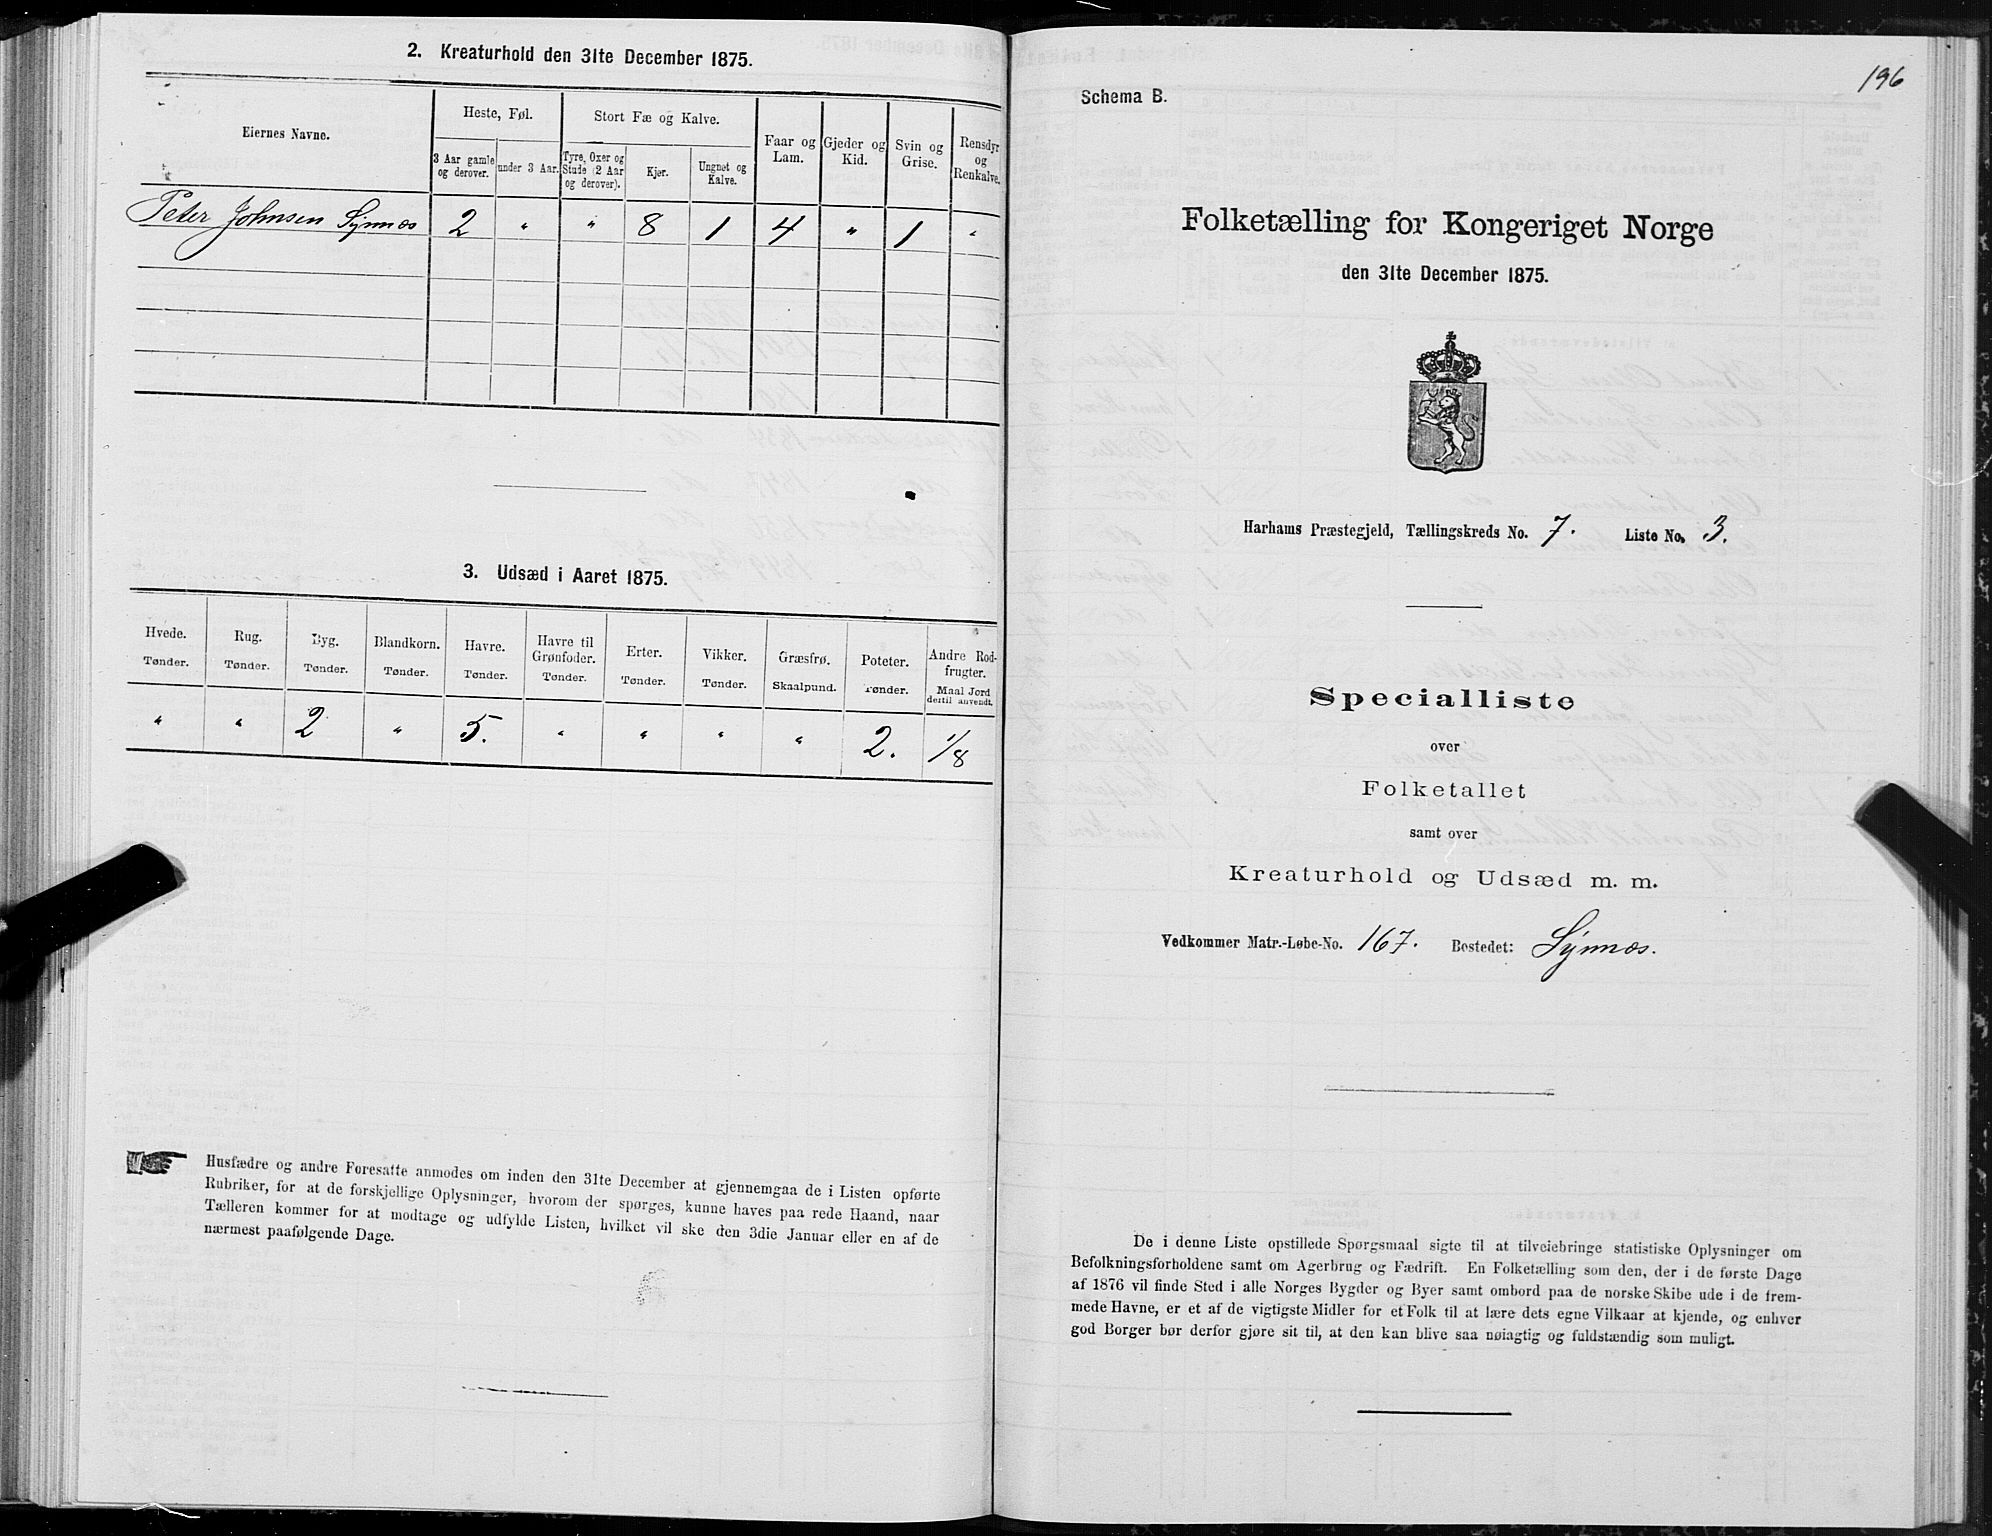 2. Kreaturhold den 31te December 1875.
Eiernes Navne.
Heste, Føl.
Stort Fæ og Kalve.
Faar og Lam.
Gjeder og Kid.
Svin og Grise.
Rensdyr og Renkalve.
3 Aar gamle og derover.
under 3 Aar.
Tyre, Oxer og Stude (2 Aar og derover).
Kjør.
Ungnet og Kalve.
Peter Johnsen Synnæs 2 " " 8 1 4 " 1 "
3. Udsæd i Aaret 1875.
Hvede. Rug. Byg. Blandkorn. Havre. Havre til Grønfoder. Erter. Vikker. Græsfrø. Poteter. Andre Rodfrugter.
Tønder. Tønder. Tønder. Tønder. Tønder. Tønder. Tønder. Tønder. Skaalpund. Tønder. Maal Jord dertil anvendt.
" " 2 " 5. " " " " 2. 1/8
Husfædre og andre Foresatte anmodes om inden den 31te December at gjennemgaa de i Listen opførte
Rubriker, for at de forskjellige Oplysninger, hvorom der spørges, kunne haves paa rede Haand, naar
Tælleren kommer for at modtage og udfylde Listen, hvilket vil ske den 3die Januar eller en af de
nærmest paafølgende Dage.
196
Schema B.
Folketælling for Kongeriget Norge
den 31te December 1875.
Harhams Præstegjeld, Tællingskreds No. 7. Liste No. 3.
Specialliste
over
Folketallet
samt over
Kreaturhold og Udsæd m. m.
Vedkommer Matr.-Løbe-No. 167. Bostedet: Synnæs.
De i denne Liste opstillede Spørgsmaal sigte til at tilveiebringe statistiske Oplysninger om
Befolkningsforholdene samt om Agerbrug og Fædrift. En Folketælling som den, der i de første Dage
af 1876 vil finde Sted i alle Norges Bygder og Byer samt ombord paa de norske Skibe ude i de frem-
mede Havne, er et af de vigtigste Midler for et Folk til at lære dets egne Vilkaar at kjende, og enhver
god Borger bør derfor gjøre sit til, at den kan blive saa nøiagtig og fuldstændig som muligt.